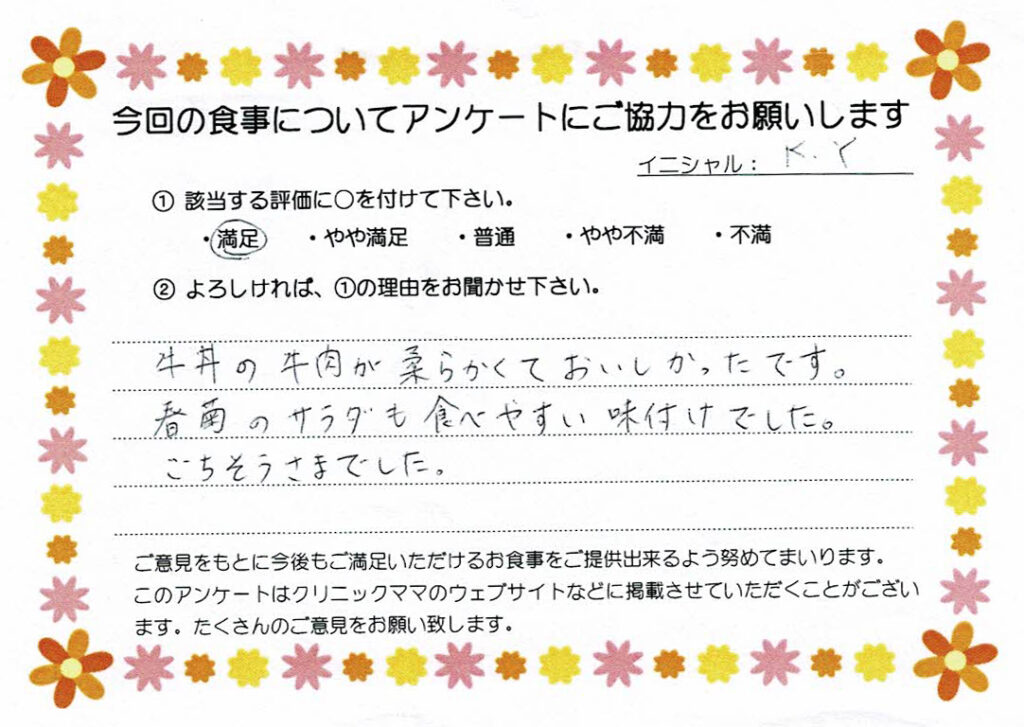 今回の食事についてアンケートにご協力をお願いします
イニシャル： K.Y
① 該当する評価に○を付けて下さい。
・満足 ・やや満足 ・普通 ・やや不満 ・不満
② よろしければ、①の理由をお聞かせ下さい。
牛丼の牛肉が柔らかくておいしかったです。
春菊のサラダも食べやすい味付けでした。
ごちそうさまでした。
ご意見をもとに今後もご満足いただけるお食事をご提供出来るよう努めてまいります。
このアンケートはクリニックママのウェブサイトなどに掲載させていただくことがござい
ます。たくさんのご意見をお願い致します。